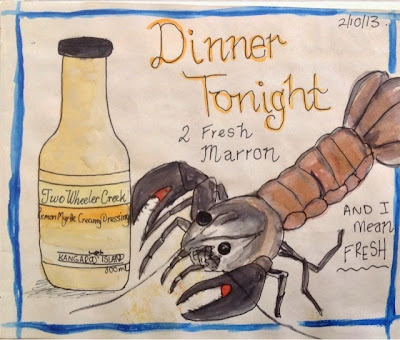 2/10/13.
Dinner
Tonight
2 Fresh
Marron
AND I
Mean
FRESH
Two Wheeler Creek
Lemon Myrtle Creamy Dressing
KANGAROO ISLAND
300mL